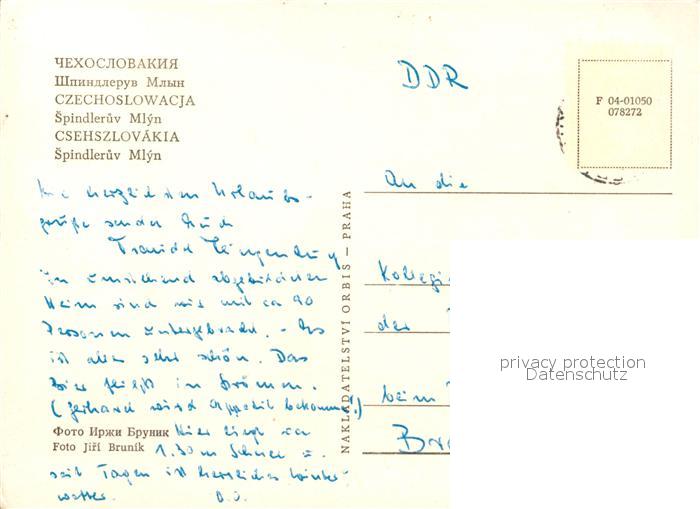 ЧЕХОСЛОВАКИЯ
Шпиндлерув Млын
CZECHOSLOWACJA
Špindlerův Mlýn
CSEHSZLOVÁKIA
Špindlerův Mlýn
DDR
F 04-01050
078272
herzlichen Urlaubs-
grüße sendet Euch
Familie
In umstehend abgebildeten
Heim sind wir mit ca 90
Personen untergebracht. - Es
ist alles sehr schön. Das
Bier fließt in Strömen.
(Gerhard wird Appetit bekommen!)
Hier liegt ca
1.30 m Schnee u.
seit Tagen ist herrliches Winter-
wetter. D.O.
Фото Иржи Бруник
Foto Jiří Bruník
NAKLADATELSTVÍ ORBIS — PRAHA
An die
Kollegi
der
beim
privacy protection
Datenschutz